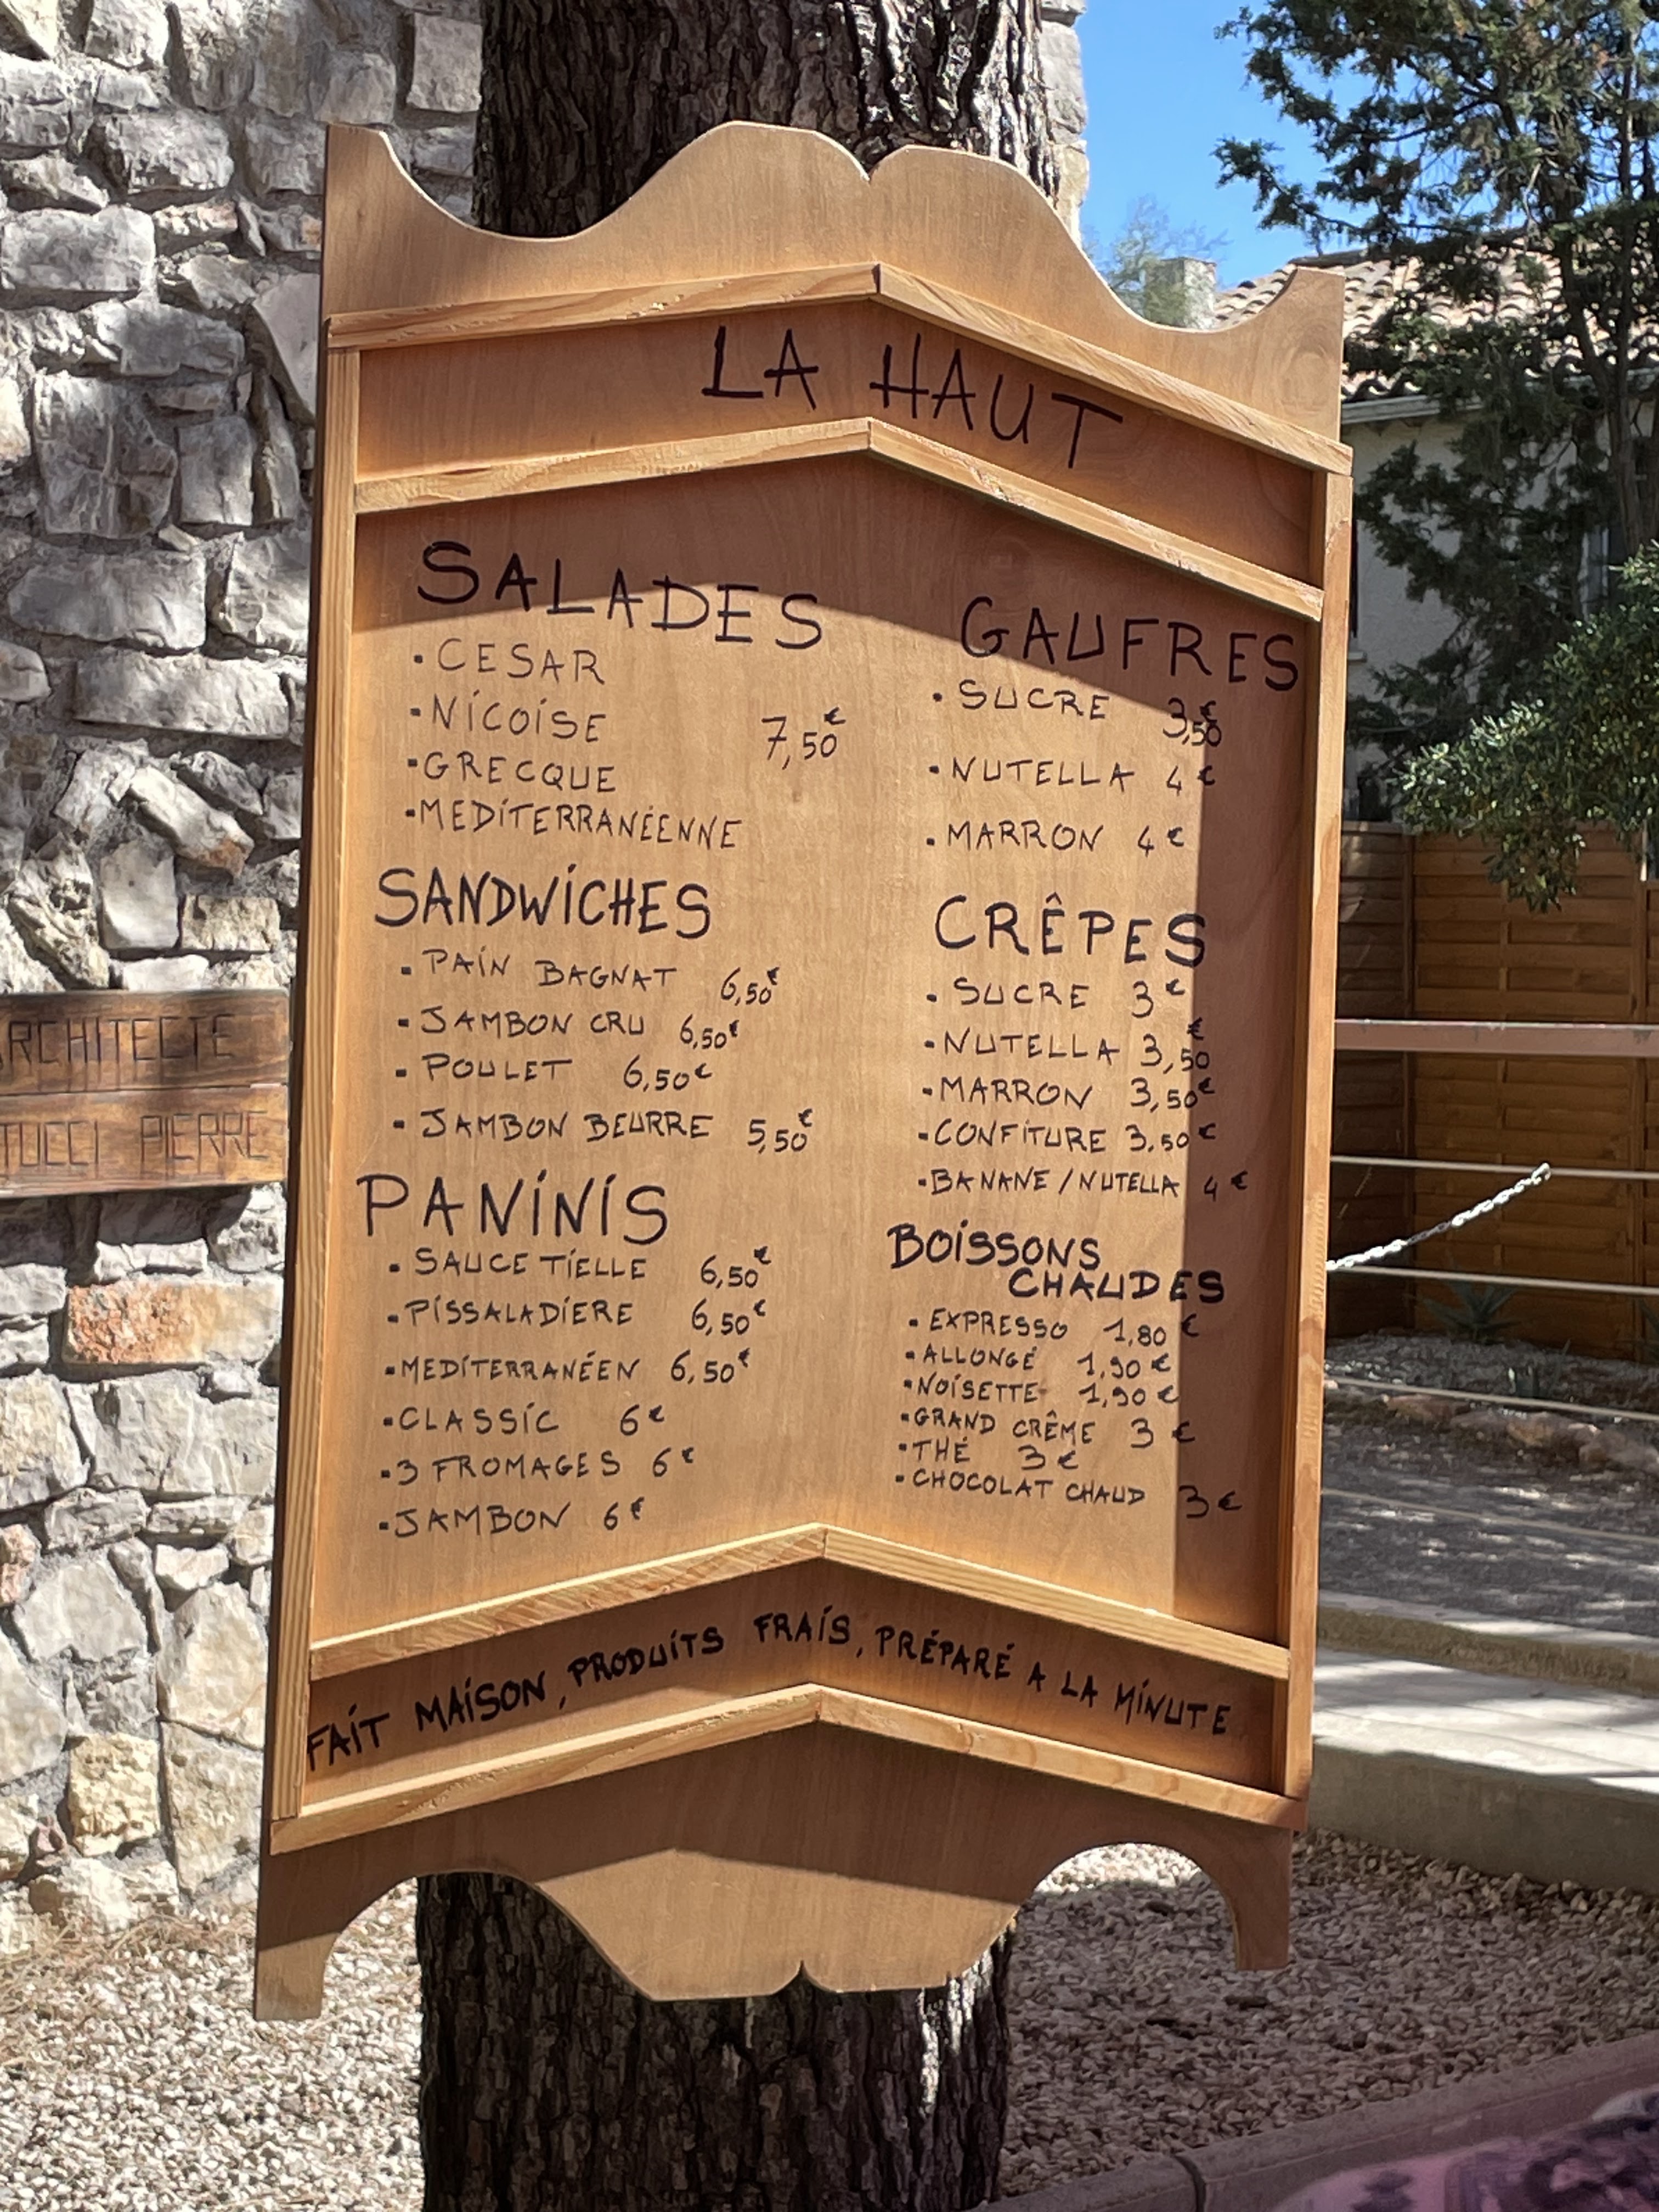 LA HAUT
SALADES
• CESAR
• NICOISE
7,50€
• GRECQUE
• MEDITERRANÉENNE
SANDWICHES
• PAIN BAGNAT 6,50€
• JAMBON CRU 6,50€
• POULET 6,50€
• JAMBON BEURRE 5,50€
PANINIS
• SAUCE TIELLE 6,50€
• PISSALADIERE 6,50€
• MEDITERRANÉEN 6,50€
• CLASSIC 6€
• 3 FROMAGES 6€
• JAMBON 6€
GAUFRES
• SUCRE 3,50€
• NUTELLA 4€
• MARRON 4€
CRÊPES
• SUCRE 3€
• NUTELLA 3,50€
• MARRON 3,50€
• CONFITURE 3,50€
• BANANE / NUTELLA 4€
BOISSONS
CHAUDES
• EXPRESSO 1,80€
• ALLONGÉ 1,90€
• NOISETTE 1,90€
• GRAND CRÊME 3€
• THÉ 3€
• CHOCOLAT CHAUD 3€
FAIT MAISON, PRODUITS FRAIS, PRÉPARÉ A LA MINUTE
ARCHITECTE
TUCCI PIERRE